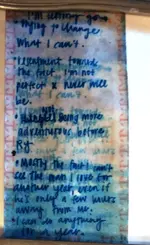 I'm letting go
• trying to change
What I can't.
• Resentment towards
the fact I'm not
perfect & never will
be.
• not being more
adventurous before
Ry.
• Mostly the fact I can't
see the man I love for
another year even if
he's only a few hours
away from me.
I can do anything
for a year.